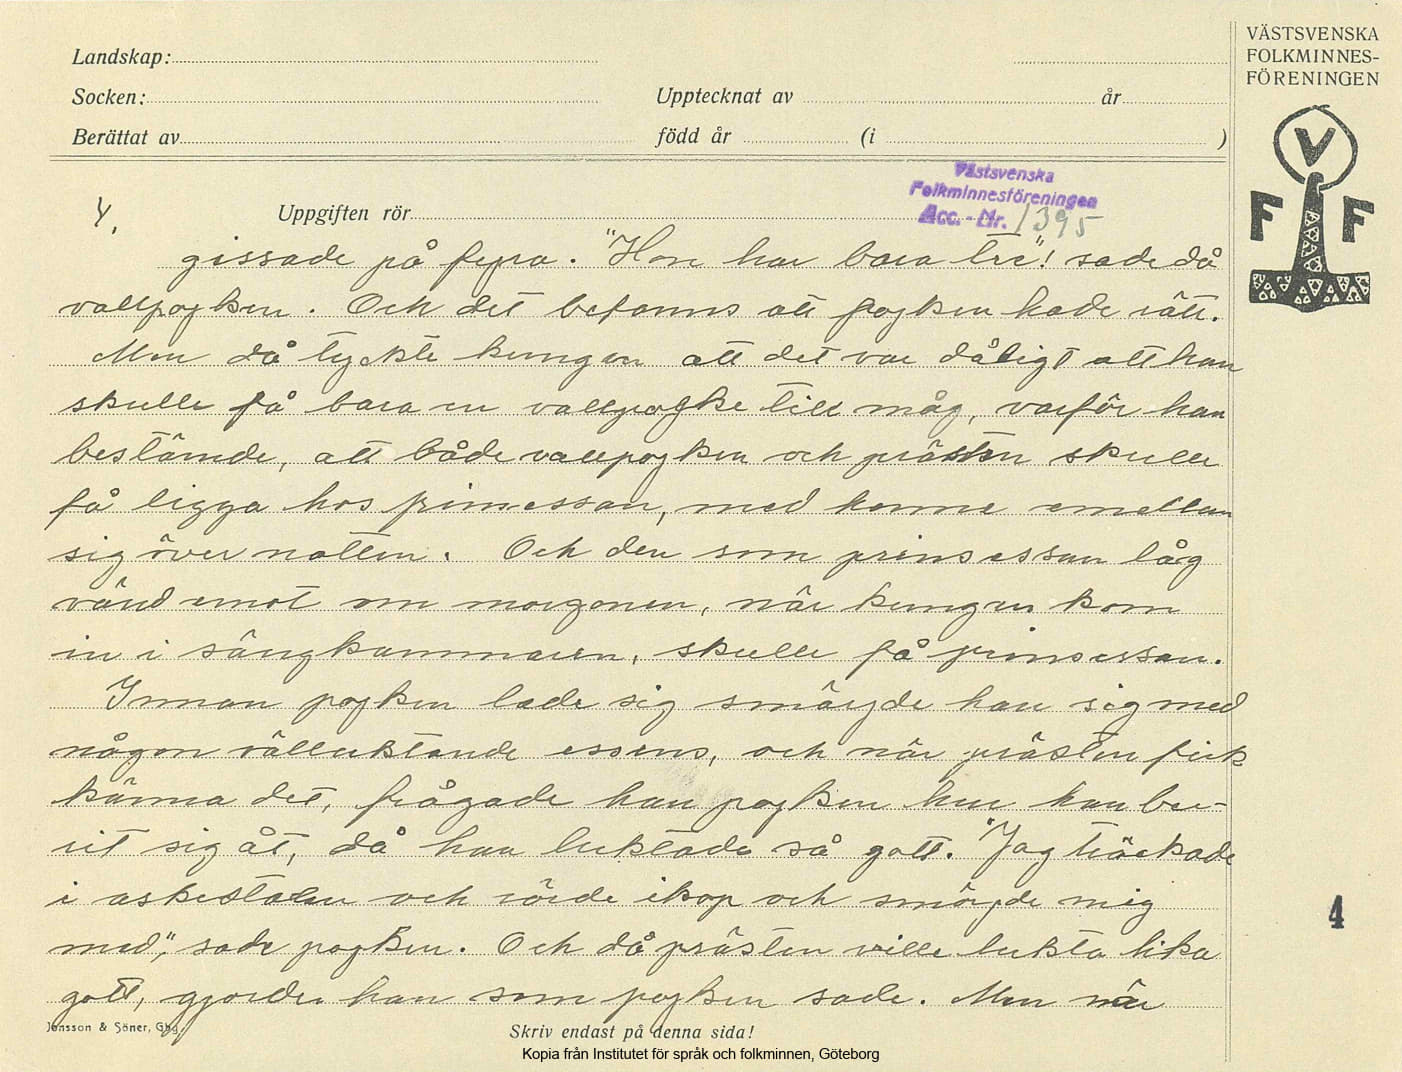 Landskap:
Socken:
Upptecknat av
år
Berättat av
född år
(i
)
VÄSTSVENSKA
FOLKMINNES-
FÖRENINGEN
V
F F
Västsvenska
Folkminnesföreningen
Acc. - Nr. 1395
4.
Uppgiften rör
gissade på fyra. "Hon har bara tre"! sade då
vallpojken. Och det befanns att pojken hade rätt.
Men då tyckte kungen att det var dåligt att han
skulle få bara en vallpojke till måg, varför han
bestämde, att både vallpojken och prästen skulle
få ligga hos prinsessan, med henne emellan
sig över natten. Och den som prinsessan låg
vänd emot om morgonen, när kungen kom
in i sängkammaren, skulle få prinsessan.
Innan pojken lade sig smörjde han sig med
någon välluktande essens, och när prästen fick
känna det, frågade han pojken hur han bu-
rit sig åt, då han luktade så gott. "Jag träckade
i askestolen och rörde ihop och smörjde mig
med", sade pojken. Och då prästen ville lukta lika
gott, gjorde han som pojken sade. Men när
4
Jonsson & Söner, Gbg.
Skriv endast på denna sida!
Kopia från Institutet för språk och folkminnen, Göteborg